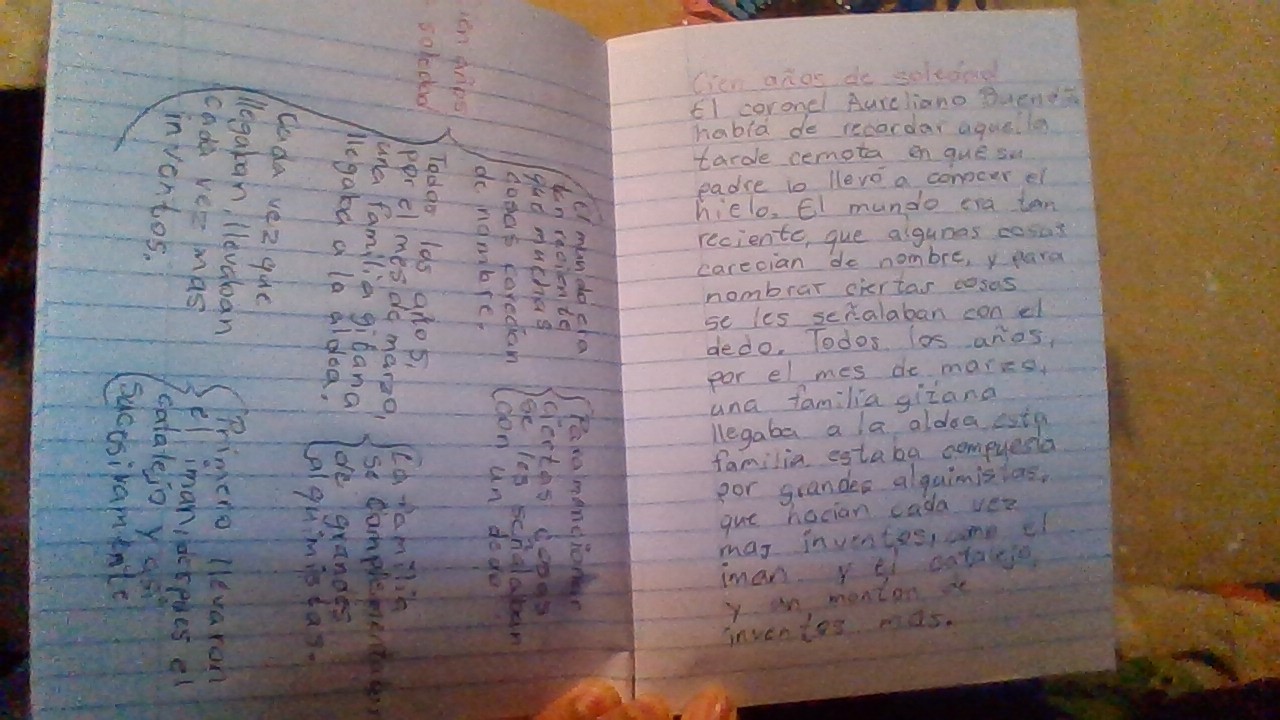 Cien años de soledad
El coronel Aureliano Buendia
había de recordar aquella
tarde cemota en que su
padre lo llevó a conocer el
hielo. El mundo era tan
reciente, que algunas cosas
carecian de nombre, y para
nombrar ciertas cosas
se les señalaban con el
dedo. Todos los años,
por el mes de marzo,
una familia gitana
llegaba a la aldea esta
familia estaba compuesta
por grandes alquimistas,
que hacian cada vez
mas inventos, como el
iman y el catalejo,
y un monton de
inventos mas.
años
soledad
El mundo era
tan reciente
que muchas
cosas carecian
de nombre.
Para mencionar
ciertas cosas
se les señalaban
con un dedo
Todos los años,
por el mes de marzo,
una familia gitana
llegaba a la aldea.
La familia
se
de grandes
alquimistas.
Cada vez que
llegaban, llevaban
cada vez mas
inventos.
Primero llevaron
el iman, despues el
catalejo y asi
Sucesivamente